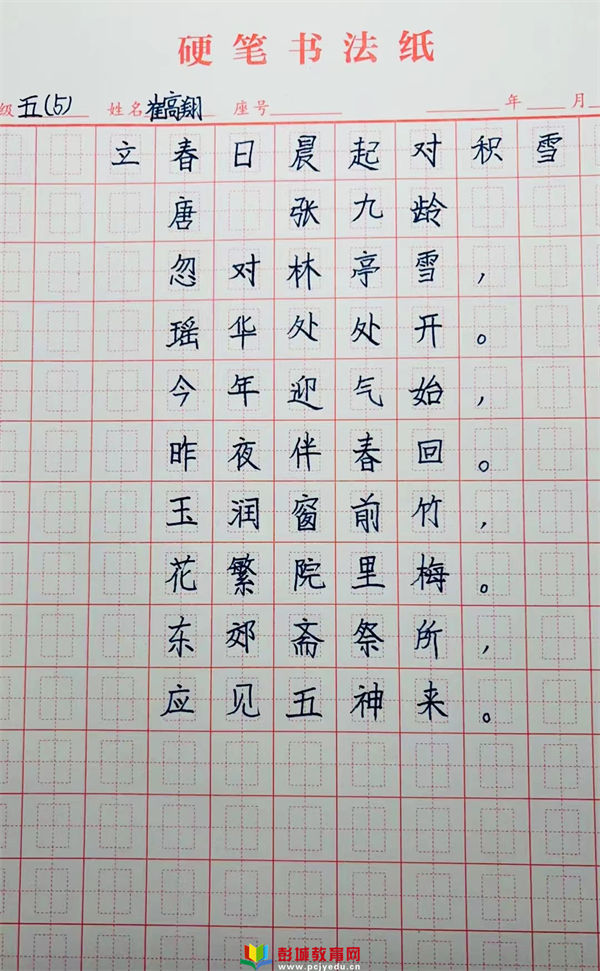 硬笔书法纸
级 五(5) 姓名 崔高翔 座号 年 月
立春日晨起对积雪
唐 张九龄
忽对林亭雪,
瑶华处处开。
今年迎气始,
昨夜伴春回。
玉润窗前竹,
花繁院里梅。
东郊斋祭所,
应见五神来。
彭城教育网
www.pcjyedu.cn